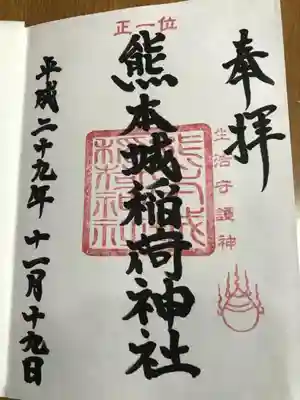 奉拝
生活守護神
正一位
熊本城稲荷神社
熊本城稲荷神社
平成二十九年十一月十九日